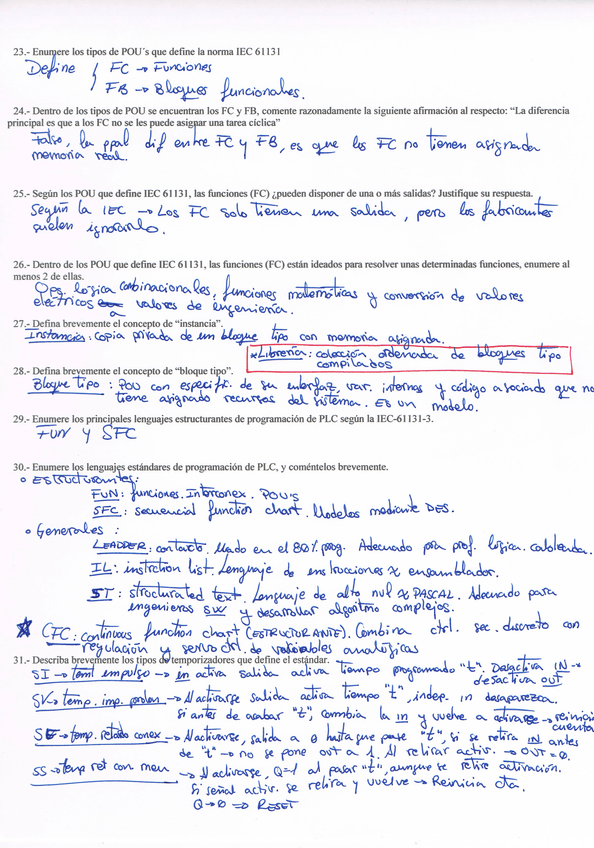 23.- Enumere los tipos de POU´s que define la norma IEC 61131
Define { FC → Funciones
FB → Bloques funcionales.
24.- Dentro de los tipos de POU se encuentran los FC y FB, comente razonadamente la siguiente afirmación al respecto: “La diferencia
principal es que a los FC no se les puede asignar una tarea cíclica”
Falso, la ppal dif entre FC y FB, es que los FC no tienen asignada
memoria real.
25.- Según los POU que define IEC 61131, las funciones (FC) ¿pueden disponer de una o más salidas? Justifique su respuesta.
Según la IEC → Los FC solo tienen una salida, pero los fabricantes
suelen ignorarlo.
26.- Dentro de los POU que define IEC 61131, las funciones (FC) están ideados para resolver unas determinadas funciones, enumere al
menos 2 de ellas.
Ops. lógica combinacionales, funciones matemáticas y conversión de valores
eléctricos a valores de ingeniería.
27.- Defina brevemente el concepto de “instancia”.
Instancia: copia privada de un bloque tipo con memoria asignada.
*Librería: colección ordenada de bloques tipo
compilados
28.- Defina brevemente el concepto de “bloque tipo”.
Bloque tipo: POU con especific. de su interfaz, var. internas y código asociado que no
tiene asignado recursos del sistema. Es un modelo.
29.- Enumere los principales lenguajes estructurantes de programación de PLC según la IEC-61131-3.
FUN y SFC
30.- Enumere los lenguajes estándares de programación de PLC, y coméntelos brevemente.
o Estructurantes:
FUN: funciones. Interconex. POU's
SFC: secuencial function chart. Modelos mediante DES.
o Generales:
LEADDER: contacto. Usado en el 80% prog. Adecuado para prof. lógica cableada.
IL: instrction list. Lenguaje de instrucciones ≈ ensamblador.
ST: structurated text. Lenguaje de alto nvl ≈ PASCAL. Adecuado para
ingenieros SW y desarrollar algoritmo complejos.
* CFC: continuous function chart (ESTRUCTORANTE). Combina ctrl. sec. discreto con
regulación y servo ctrl. de variables analógicas
31.- Describa brevemente los tipos de temporizadores que define el estándar.
SI → temp impulso → in activa salida activa tiempo programado "t". Desactiva IN →
desactiva OUT
SV → temp. imp. prolon → Al activarse salida activa tiempo "t", indep. in desaparezca.
Si antes de acabar "t", cambia la IN y vuelve a activarse → reinicio
cuenta
SE → temp. retado conex → Al activarse, salida a 0 hasta que pase "t", si se retira IN antes
de "t" → no se pone out a 1. Al retirar activ. → OUT=0.
SS → temp ret con mem → Al activarse, Q=1 al pasar "t", aunque se retire activación.
Si señal activ. se retira y vuelve → Reinicia cta.
Q→0 ⇒ RESET